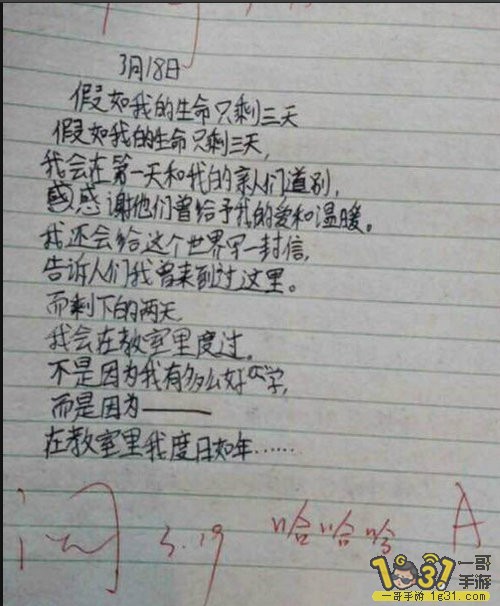 3月18日
假如我的生命只剩三天
假如我的生命只剩三天,
我会在第一天和我的亲人们道别,
感谢他们曾给予我的爱和温暖。
我还会给这个世界写一封信,
告诉人们我曾来到过这里。
而剩下的两天
我会在教室里度过。
不是因为我有多么好学,
而是因为——
在教室里我度日如年……
阅 3.19 哈哈哈 A
1931 一哥手游
一哥手游 1g31.com